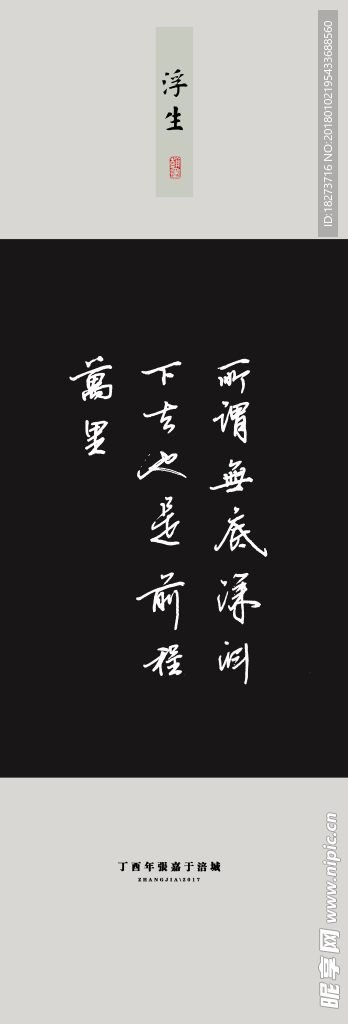 浮生
所謂無底深渊
下去也是前程
萬里
丁酉年張嘉于涪城
ZHANGJIA\2017
ID:18273716 NO:20180102195433688560
昵享网 www.nipic.cn